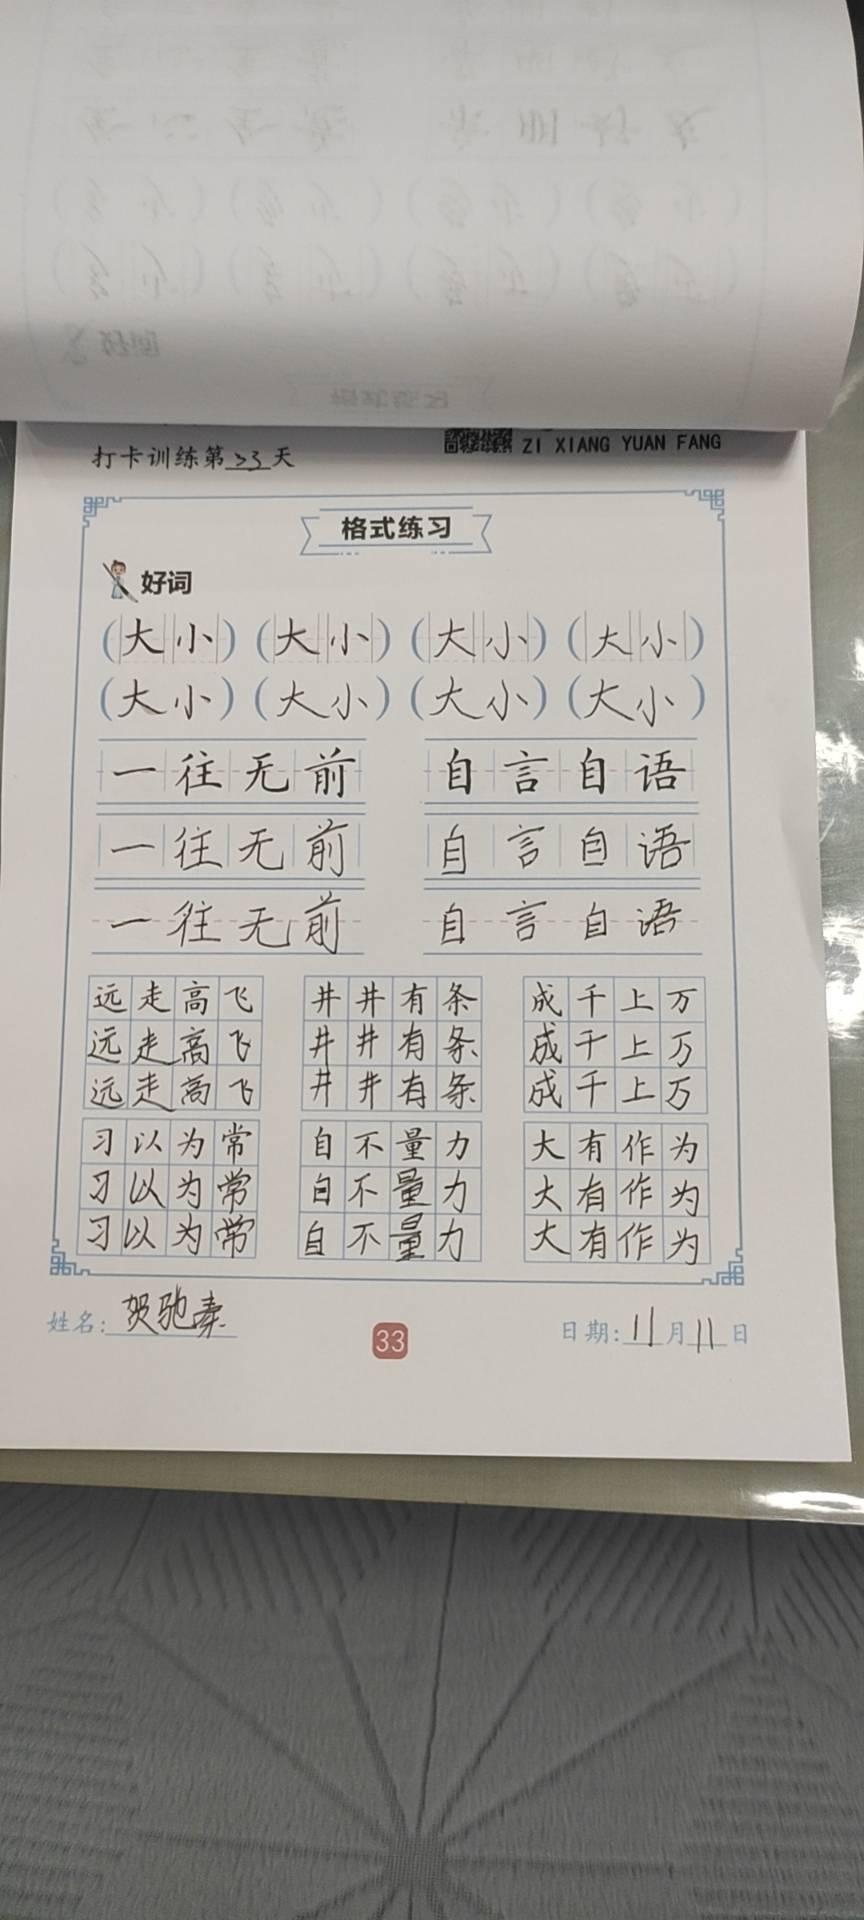 打卡训练第33天
ZI XIANG YUAN FANG
格式练习
好词
(大小) (大小) (大小) (大小)
(大小) (大小) (大小) (大小)
一往无前 自言自语
一往无前 自言自语
一往无前 自言自语
远走高飞 井井有条 成千上万
远走高飞 井井有条 成千上万
远走高飞 井井有条 成千上万
习以为常 自不量力 大有作为
习以为常 自不量力 大有作为
习以为常 自不量力 大有作为
姓名: 贺驰
33
日期: 11月11日